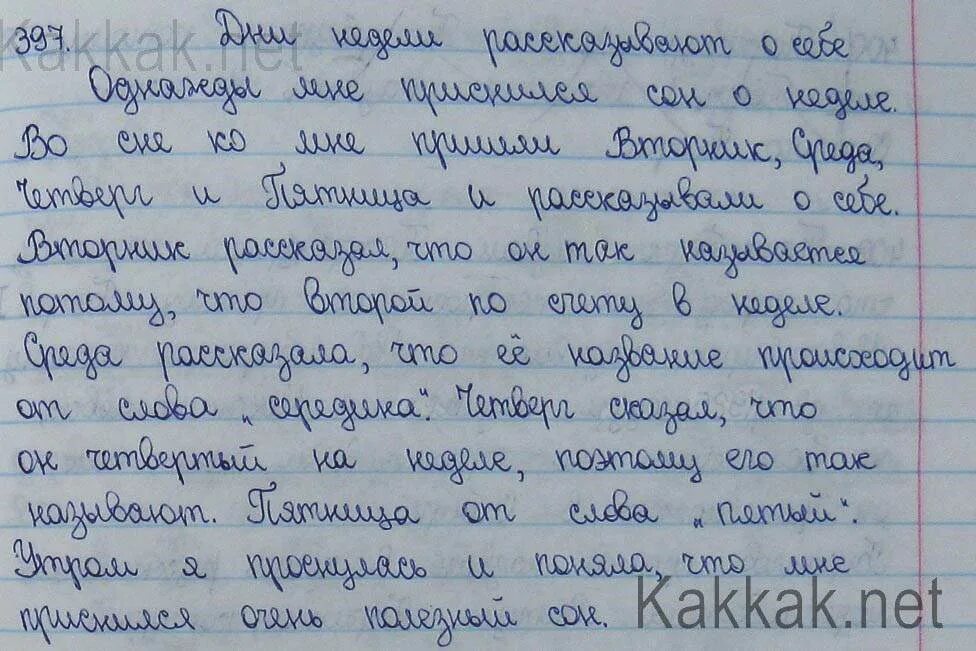 397. Дни недели рассказывают о себе
Kakkak.net
Однажды мне приснился сон о неделе.
Во сне ко мне пришли Вторник, Среда,
Четверг и Пятница и рассказывали о себе.
Вторник рассказал, что он так называется
потому, что второй по счету в неделе.
Среда рассказала, что её название происходит
от слова „середина". Четверг сказал, что
он четвертый на неделе, поэтому его так
называют. Пятница от слова „пятый".
Утром я проснулась и поняла, что мне
приснился очень полезный сон.
Kakkak.net